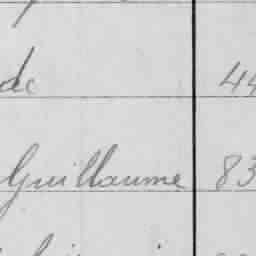 de 44
Guillaume 83